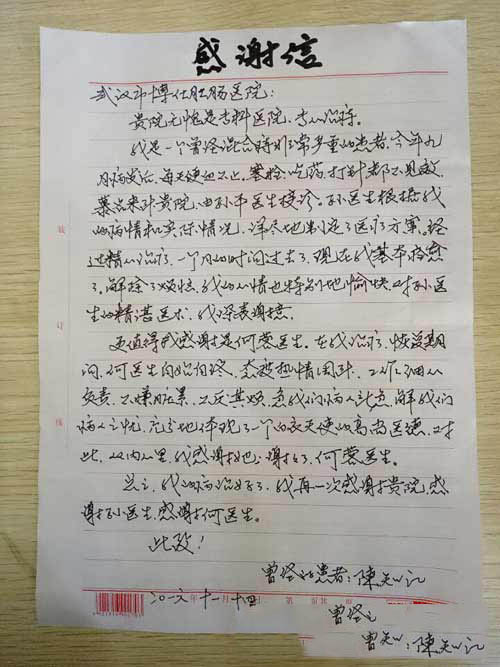 感谢信
武汉市博仕肛肠医院：
贵院无愧是专科医院、专心治痔。
我是一个曾经混合痔非常严重的患者，今年九
月病发后，每天便血不止，塞栓、吃药、打针都不见效。
慕名来到贵院，由孙平医生接诊。孙医生根据我
的病情和实际情况，详尽地制定了医疗方案。经
过精心治疗，一个月的时间过去了，现在我基本痊愈
了。解除了烦恼，我的心情也特别地愉快，对孙医
生的精湛医术，我深表谢意。
更值得我感谢是何蓉医生。在我治疗、恢复期
间，何医生自始自终，态度热情周到，工作细心
负责，不嫌脏累，不厌其烦，急我们病人之急，解我们
病人之忧，充分地体现了一个白衣天使的高尚医德，对
此，从内心里，我感谢她：谢谢了，何蓉医生。
总之，我的病治好了，我再一次感谢贵院，感
谢孙医生，感谢何医生。
此致！
曾经的患者：陈
二〇一六 十一月十四
装
订
线
第 页 共 页
曾经
陈